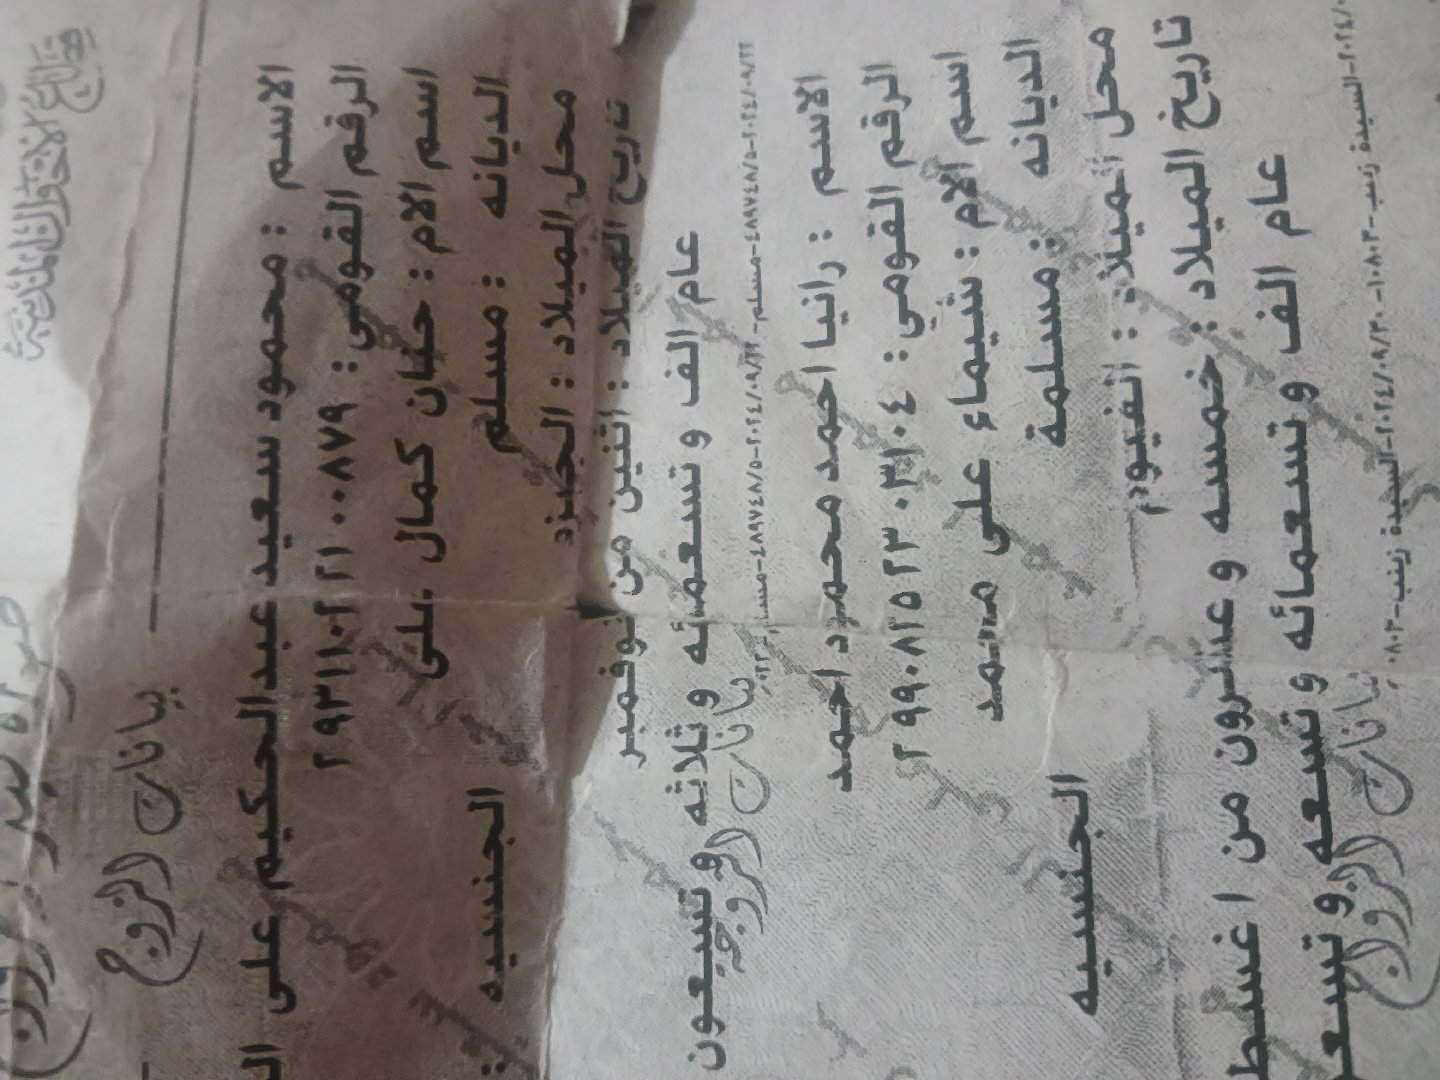 قطاع الأحوال المدنية
صورة قيد زواج
بيانات الزوج
الاسم : محمود سعيد عبدالحكيم على
الرقم القومي : ٢٩٣١١٠٢٢١٠٠٨٧٩
اسم الام : حنان كمال
الديانه : مسلم الجنسيه :
محل الميلاد : الجيزه
تاريخ الميلاد : اثنين من نوفمبر
عام الف و تسعمائه و ثلاثه و تسعون
بيانات الزوجة
الاسم : رانيا احمد محمود احمد
الرقم القومي : ٢٩٩٠٨٢٥٢٣٠٣١٠٤
اسم الام : شيماء على محمد
الديانه : مسلمة الجنسيه
محل الميلاد : الفيوم
تاريخ الميلاد : خمسه و عشرون من اغسط
عام الف و تسعمائه و تسعه و تسعو
بيانات الزواج